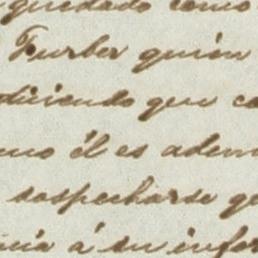 quedado como
Furber quien
diciendo que co
mo él es adem
sospecharse qu
ncia á su infor